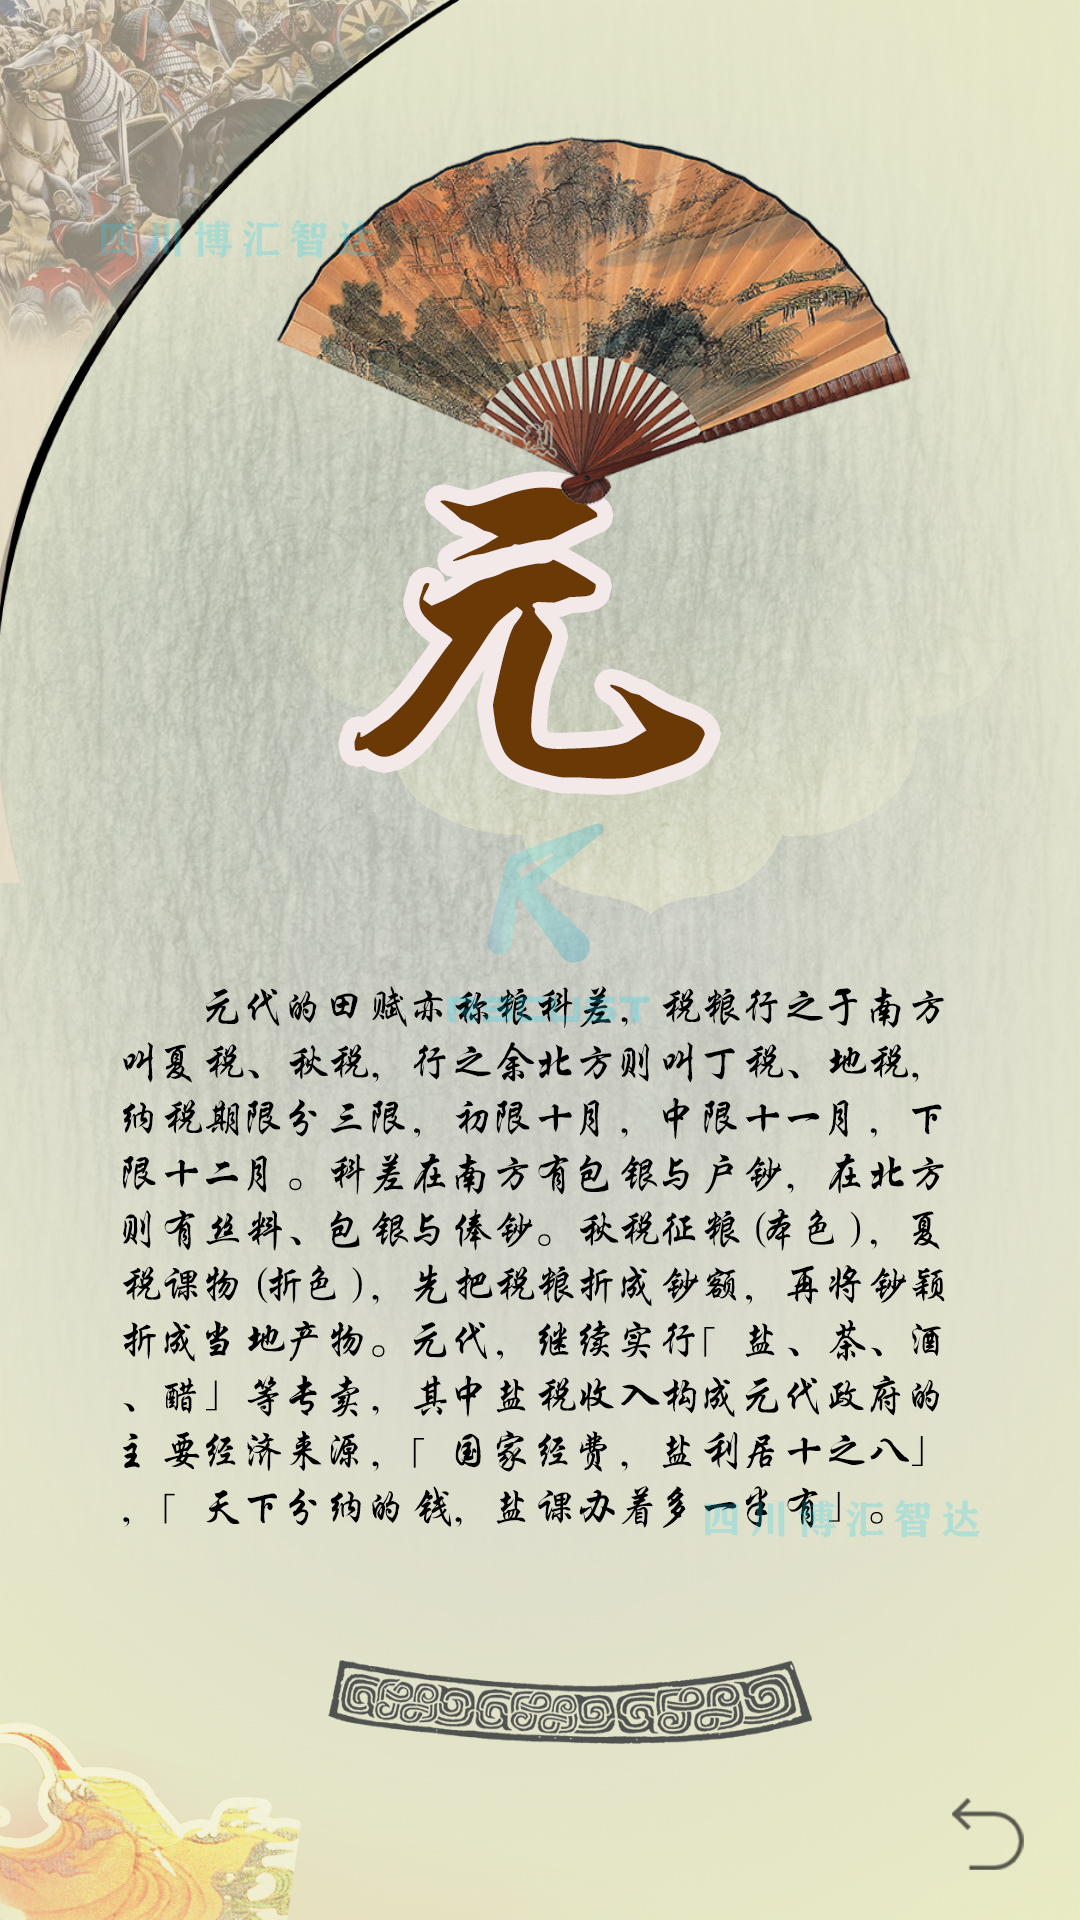 四川博汇智达
元
元代的田赋亦称粮科差，税粮行之于南方
叫夏税、秋税，行之余北方则叫丁税、地税，
纳税期限分三限，初限十月，中限十一月，下
限十二月。科差在南方有包银与户钞，在北方
则有丝料、包银与俸钞。秋税征粮(本色)，夏
税课物(折色)，先把税粮折成钞额，再将钞颖
折成当地产物。元代，继续实行「盐、茶、酒
、醋」等专卖，其中盐税收入构成元代政府的
主要经济来源，「国家经费，盐利居十之八」
，「天下分纳的钱，盐课办着多一半有」。
四川博汇智达